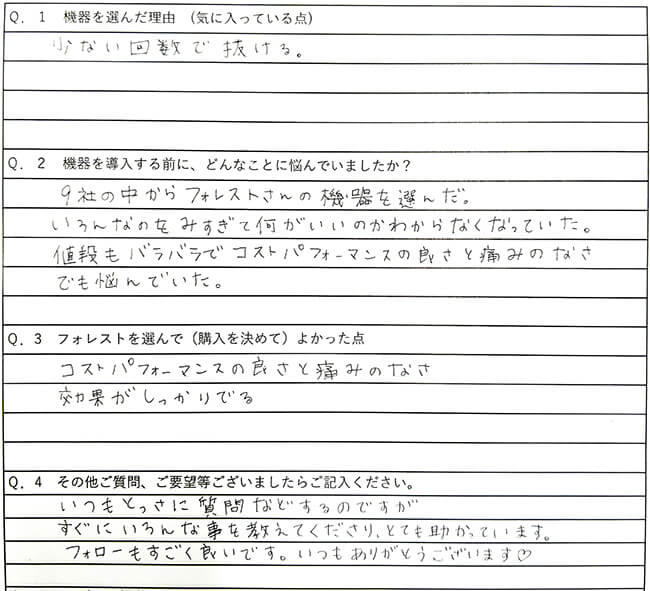 Q. 1 機器を選んだ理由 (気に入っている点)
少ない回数で抜ける。
Q. 2 機器を導入する前に、どんなことに悩んでいましたか?
9社の中からフォレストさんの機器を選んだ。
いろんなのをみすぎて何がいいのかわからなくなっていた。
値段もバラバラでコストパフォーマンスの良さと痛みのなさ
でも悩んでいた。
Q. 3 フォレストを選んで(購入を決めて)よかった点
コストパフォーマンスの良さと痛みのなさ
効果がしっかりでる
Q. 4 その他ご質問、ご要望等ございましたらご記入ください。
いつもとっさに質問などするのですが
すぐにいろんな事を教えてくださり、とても助かっています。
フォローもすごく良いです。いつもありがとうございます♡